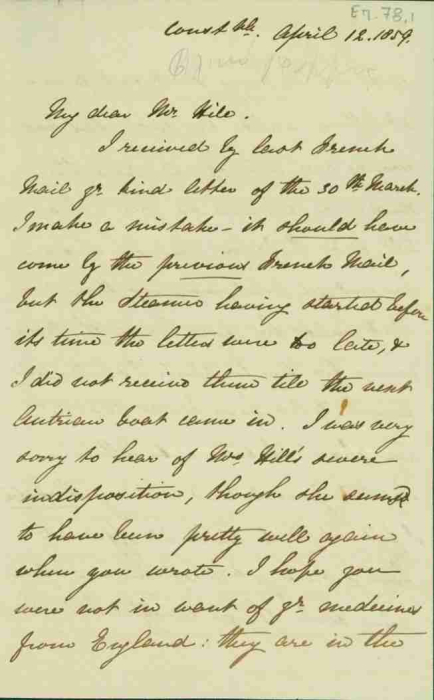 En. 78,1
Constple. April 12. 1859.
My dear Mr. Hill.
I received by last French
Mail yr. kind letter of the 30th March.
I make a mistake – it should have
come by the previous French Mail,
but the Steamer having started before
its time the letters were too late, &
I did not receive them till the next
Austrian boat came in. I was very
sorry to hear of Mrs Hill's severe
indisposition, though she seems
to have been pretty well again
when you wrote. I hope you
were not in want of yr. medicines
from England: they are in the